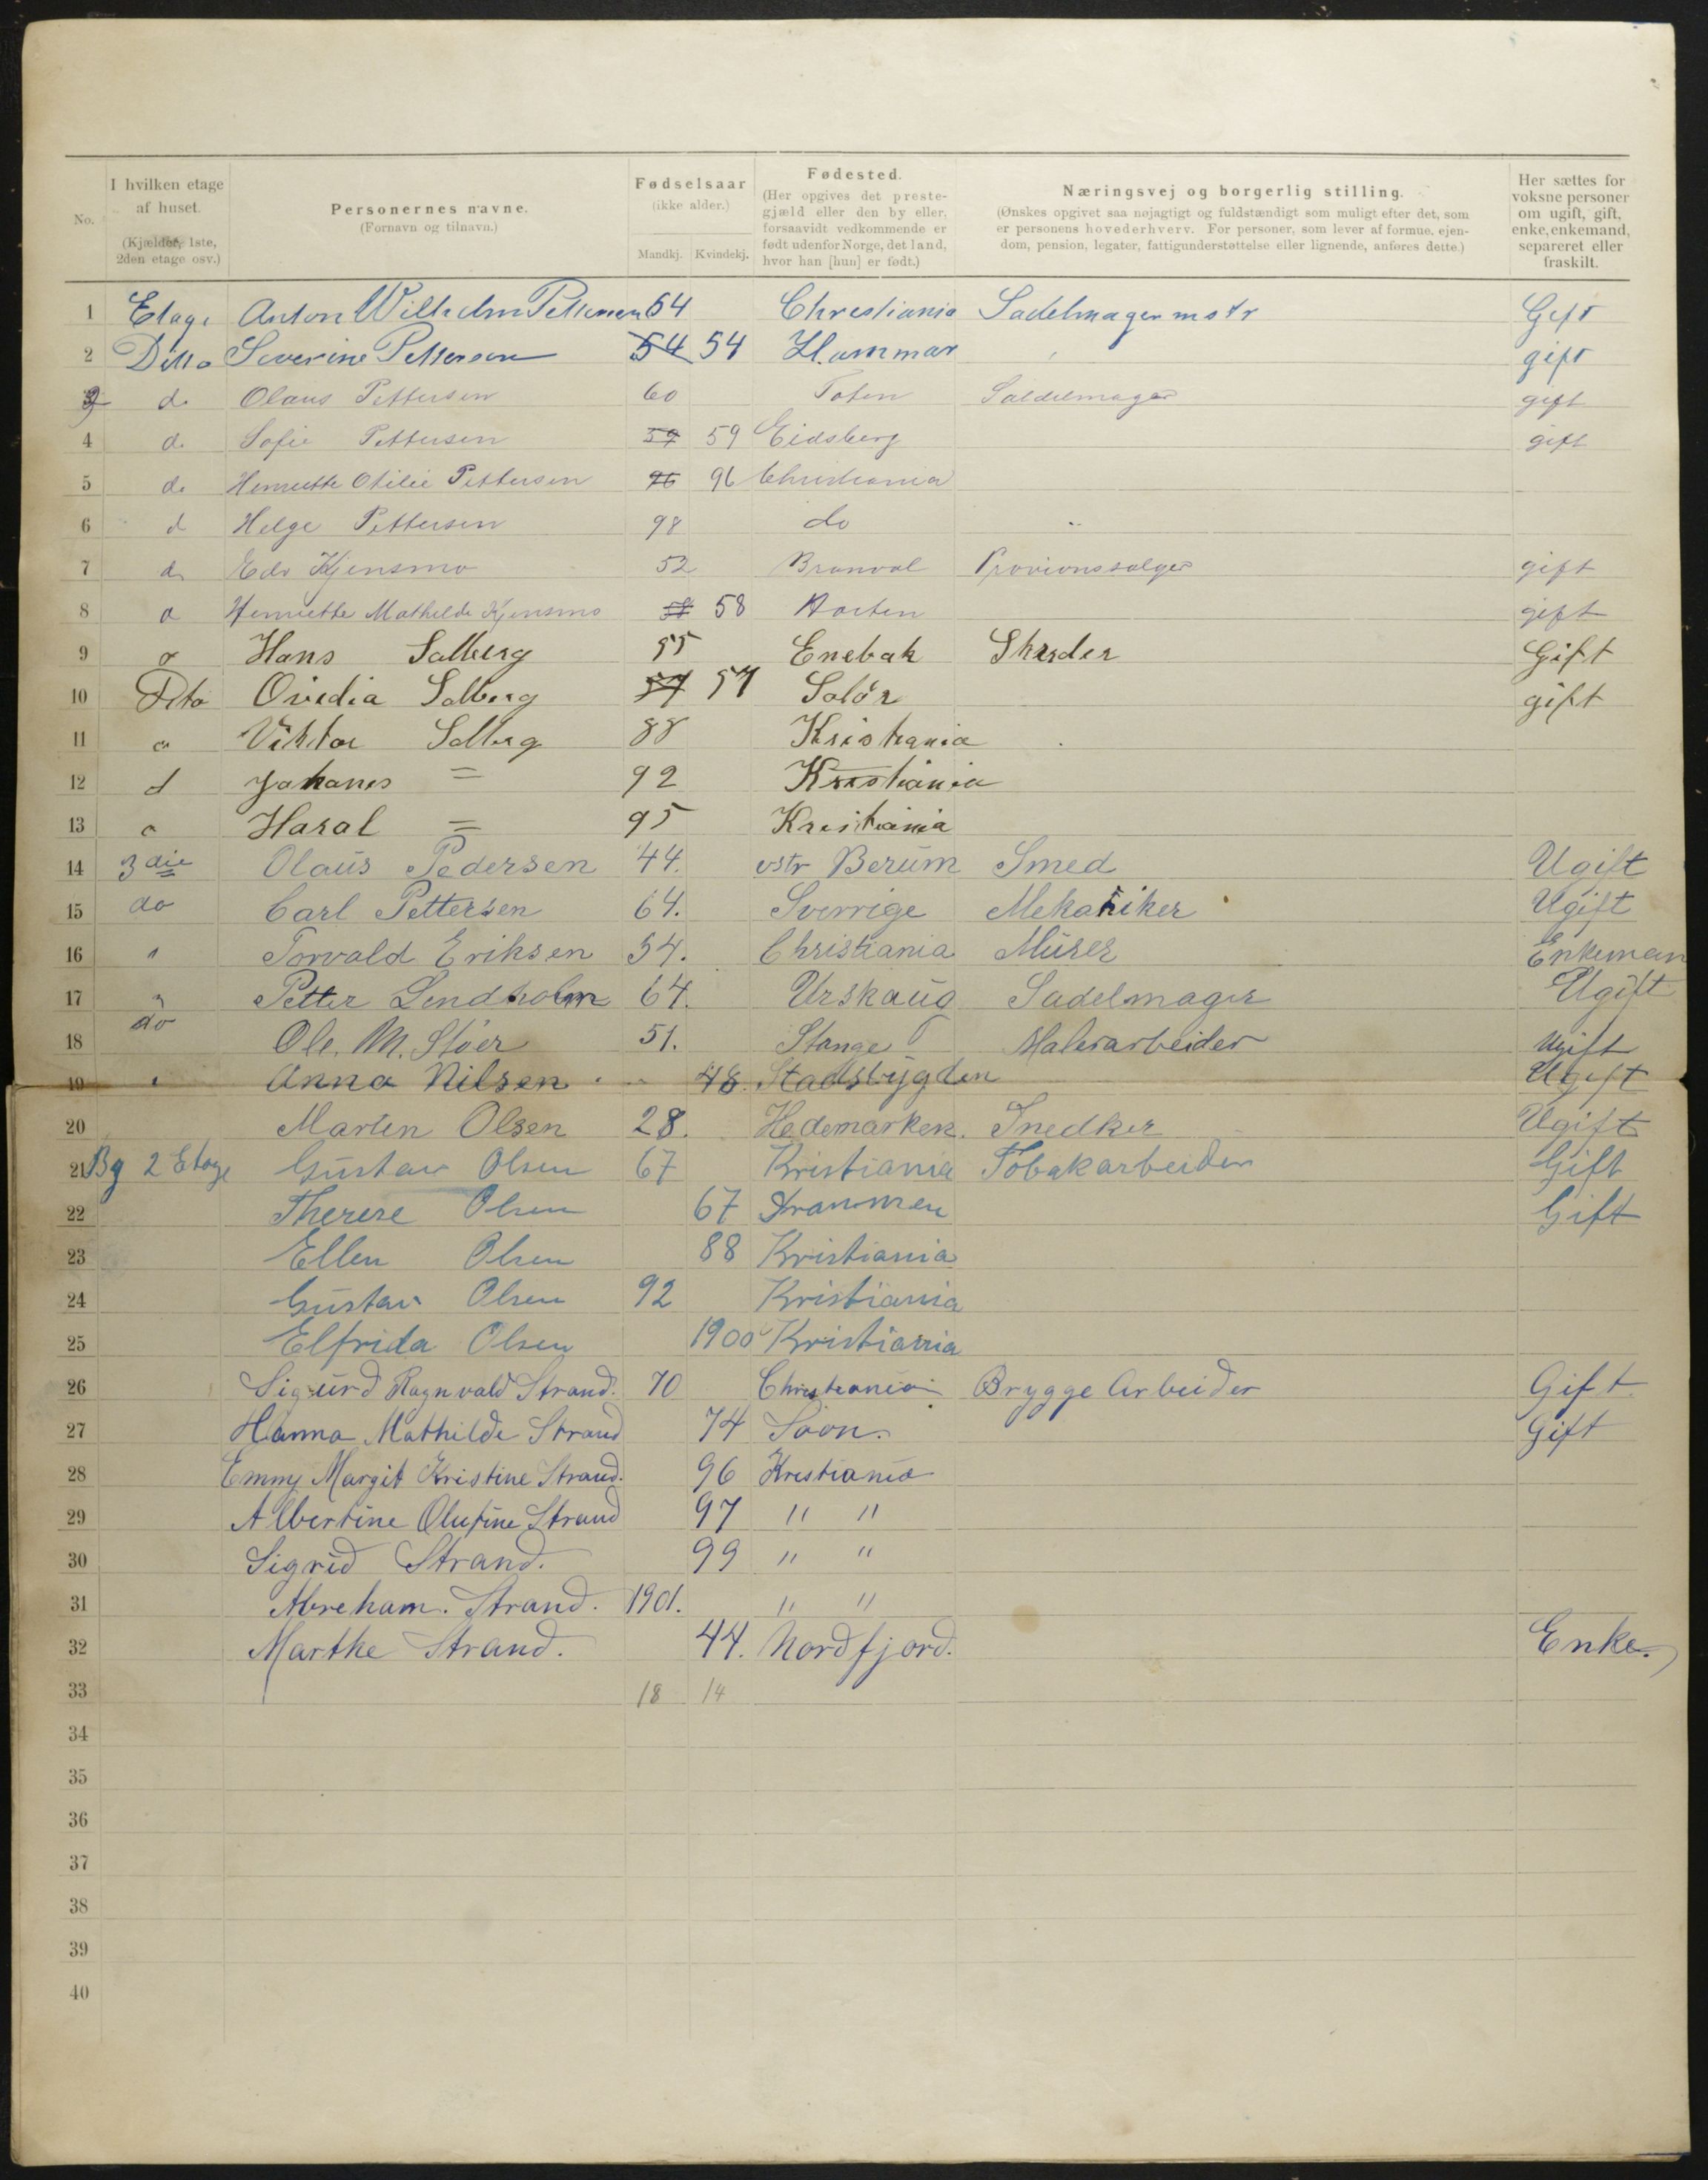 No.
I hvilken etage af huset. (Kjælder, 1ste, 2den etage osv.)
Personernes navne. (Fornavn og tilnavn.)
Fødselsaar (ikke alder.) Mandkj. Kvindekj.
Fødested. (Her opgives det prestegjæld eller den by eller, forsaavidt vedkommende er født udenfor Norge, det land, hvor han [hun] er født.)
Næringsvej og borgerlig stilling. (Ønskes opgivet saa nøjagtigt og fuldstændigt som muligt efter det, som er personens hovederhverv. For personer, som lever af formue, ejendom, pension, legater, fattigunderstøttelse eller lignende, anføres dette.)
Her sættes for voksne personer om ugift, gift, enke, enkemand, separeret eller fraskilt.
1 Etage Anton Wilhelm Pettersen 54 Christiania Sadelmagermstr Gift
2 Ditto Severine Pettersen 54 54 Hammar gift
3 do Olaus Pettersen 60 Toten Saddelmager gift
4 do Sofie Pettersen 59 59 Eidsberg gift
5 do Henriette Otilie Pettersen 96 96 Christiania
6 d Helge Pettersen 98 do
7 do Edv Kjensmo 52 Branval Provionssælger gift
8 Henriette Mathilde Kjensmo 58 58 gift
9 Hans Salberg 55 Enebak Skreder Gift
10 Dito Ovidia Solberg 57 57 Solör gift
11 Viktor Solberg 88 Kristiania
12 d Johanes = 92 Kristiania
13 Haral = 95 Kristiania
14 3die Olaus Pedersen 44. vstr Berum Smed Ugift
15 do Carl Pettersen 64. Sverrige Mekaniker Ugift
16 " Torvald Eriksen 54. Christiania Murer Enkeman
17 " Petter Lendholm 64. Urskaug Sadelmager Ugift
18 do Ole. M. Stöer 51. Stange Malerarbeider Ugift
19 " Anna Nilsen 48. Stadsbygden Ugift
20 Marten Olsen 28. Hedemarken. Snedker Ugift
21 Bg 2 Etage Gustav Olsen 67 Kristiania Tobakarbeider Gift
22 Therese Olsen 67 Drammen Gift
23 Ellen Olsen 88 Kristiania
24 Gustav Olsen 92 Kristiania
25 Elfrida Olsen 1900 Kristiania
26 Sigurd Ragnvald Strand. 70 Christiania Brygge Arbeider Gift
27 Hanna Mathilde Strand 74 Soon. Gift
28 Emmy Margit Kristine Strand. 96 Kristiania
29 Albertine Olufine Strand 97 " "
30 Sigrid Strand. 99 " "
31 Abreham. Strand. 1901. " "
32 Marthe Strand. 44. Nordfjord. Enke.
33 18 14
34
35
36
37
38
39
40